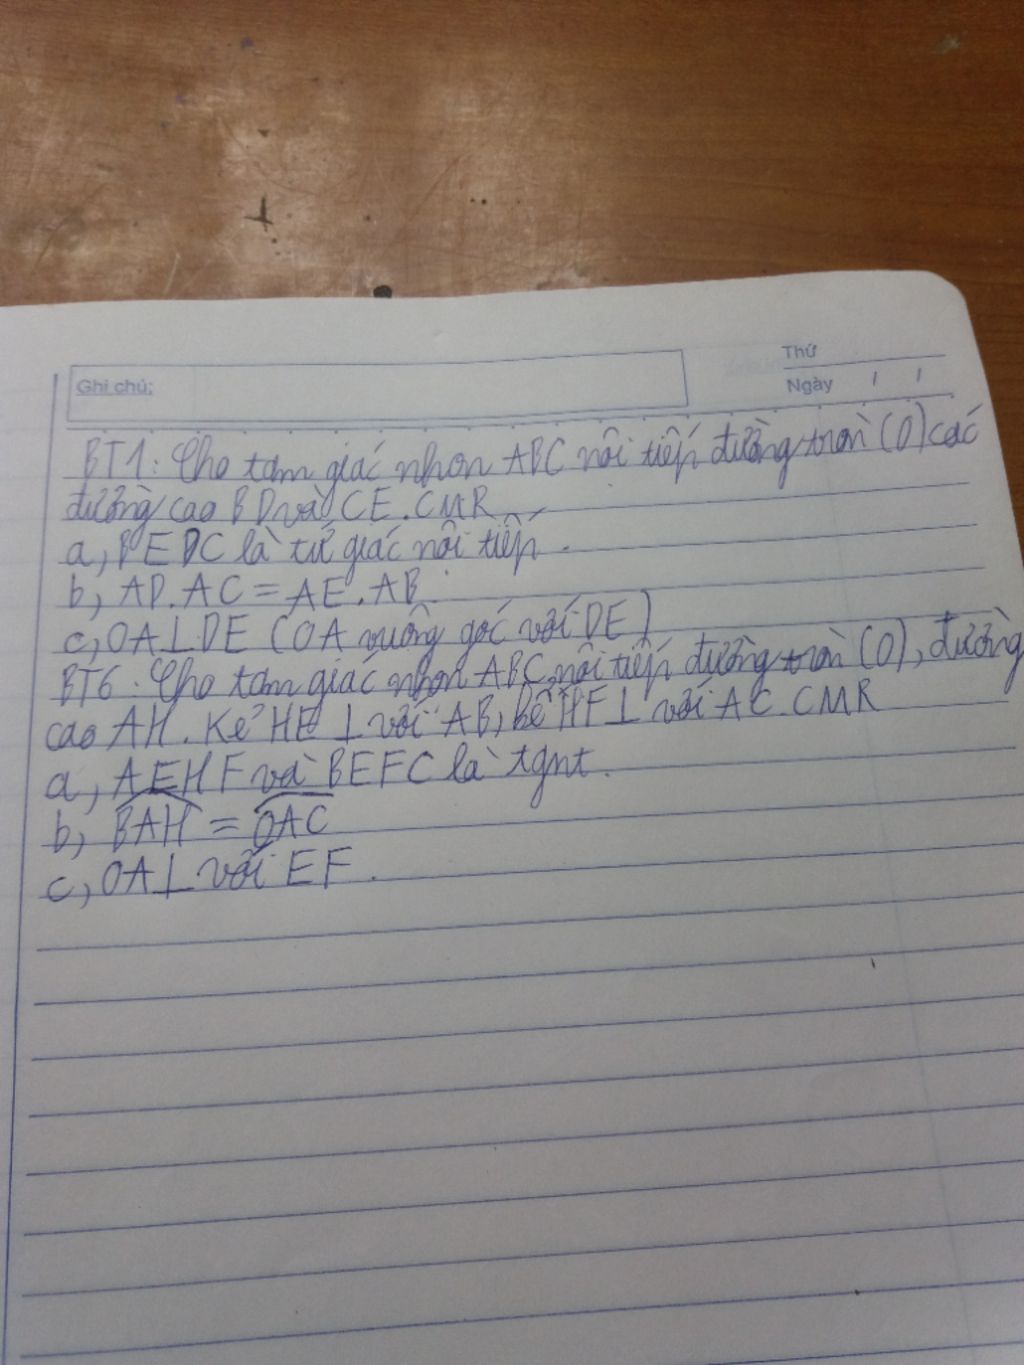 Ghi chú:
Thứ
Ngày / /
BT1: Cho tam giác nhọn ABC nội tiếp đường tròn (O) các
đường cao BD và CE. CMR
a, BEDC là tứ giác nội tiếp.
b, AD.AC = AE.AB.
c, OA⊥DE (OA vuông góc với DE)
BT6: Cho tam giác nhọn ABC nội tiếp đường tròn (O), đường
cao AH. Kẻ HE ⊥ với AB, kẻ HF⊥ với AC. CMR
a, AEHF và BEFC là tgnt.
b, \widehat{BAH} = \widehat{OAC}
c, OA⊥ với EF.